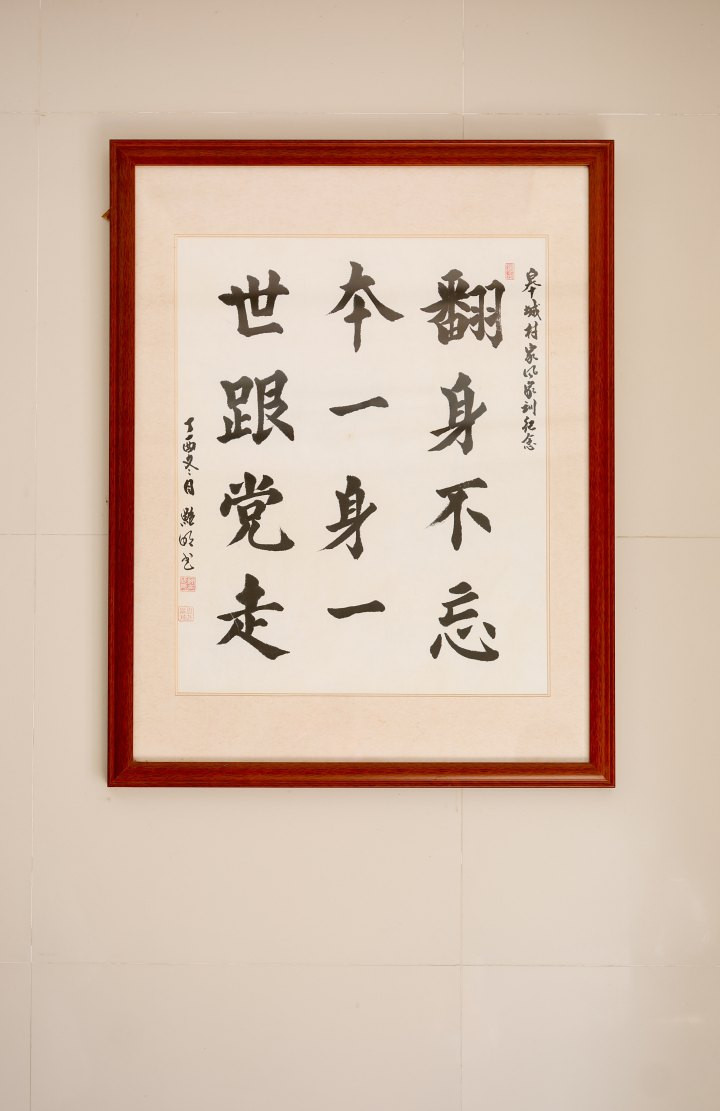 皋城村家风家训纪念
翻身不忘
本一身一
世跟党走
丁酉冬月 明书